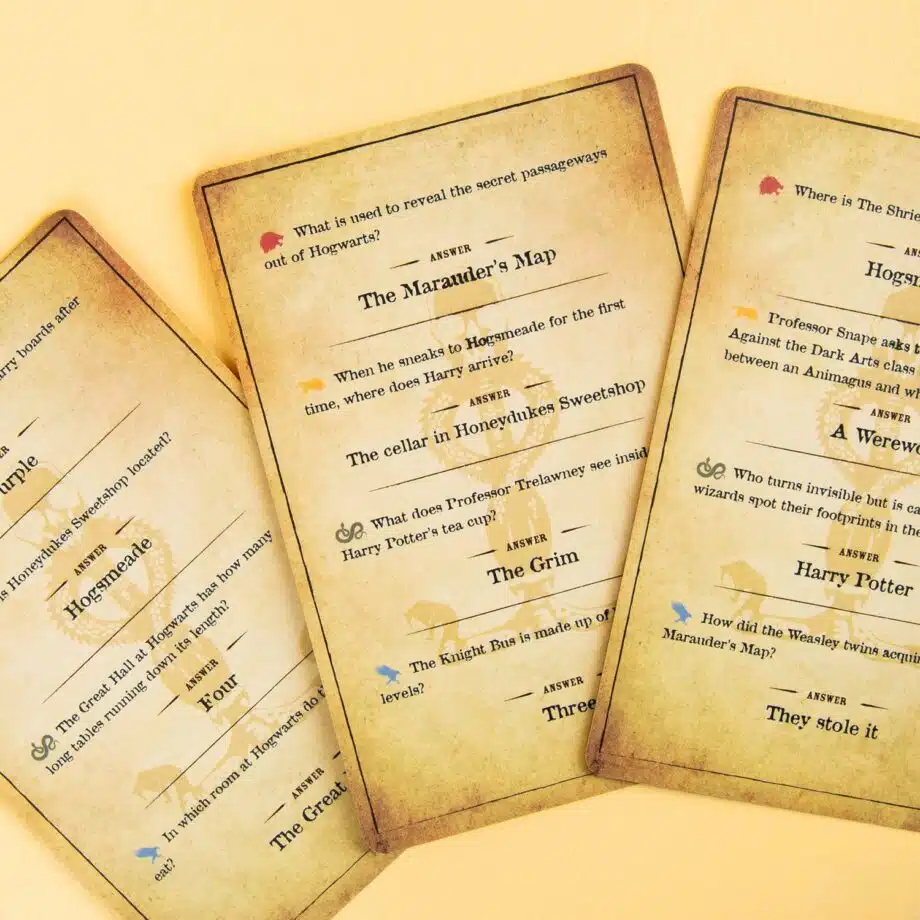 boards after
Honeydukes Sweetshop located?
ANSWER
Hogsmeade
The Great Hall at Hogwarts has how many
long tables running down its length?
ANSWER
Four
In which room at Hogwarts do
eat?
ANSWER
The Great
What is used to reveal the secret passageways
out of Hogwarts?
ANSWER
The Marauder's Map
When he sneaks to Hogsmeade for the first
time, where does Harry arrive?
ANSWER
The cellar in Honeydukes Sweetshop
What does Professor Trelawney see
Harry Potter's tea cup?
ANSWER
The Grim
The Knight Bus is made up of
levels?
ANSWER
Three
Where is The
Professor Snape asks
Against the Dark Arts class
between an Animagus and
ANSWER
A
Who turns invisible but is
wizards spot their footprints in the
ANSWER
Harry Potter
How did the Weasley twins
Marauder's Map?
ANSWER
They stole it